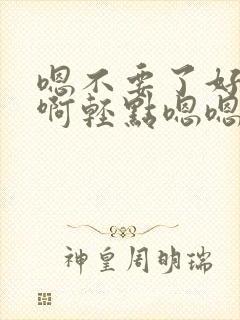 嗯不要了好
啊轻點嗯嗯
神皇周明瑞